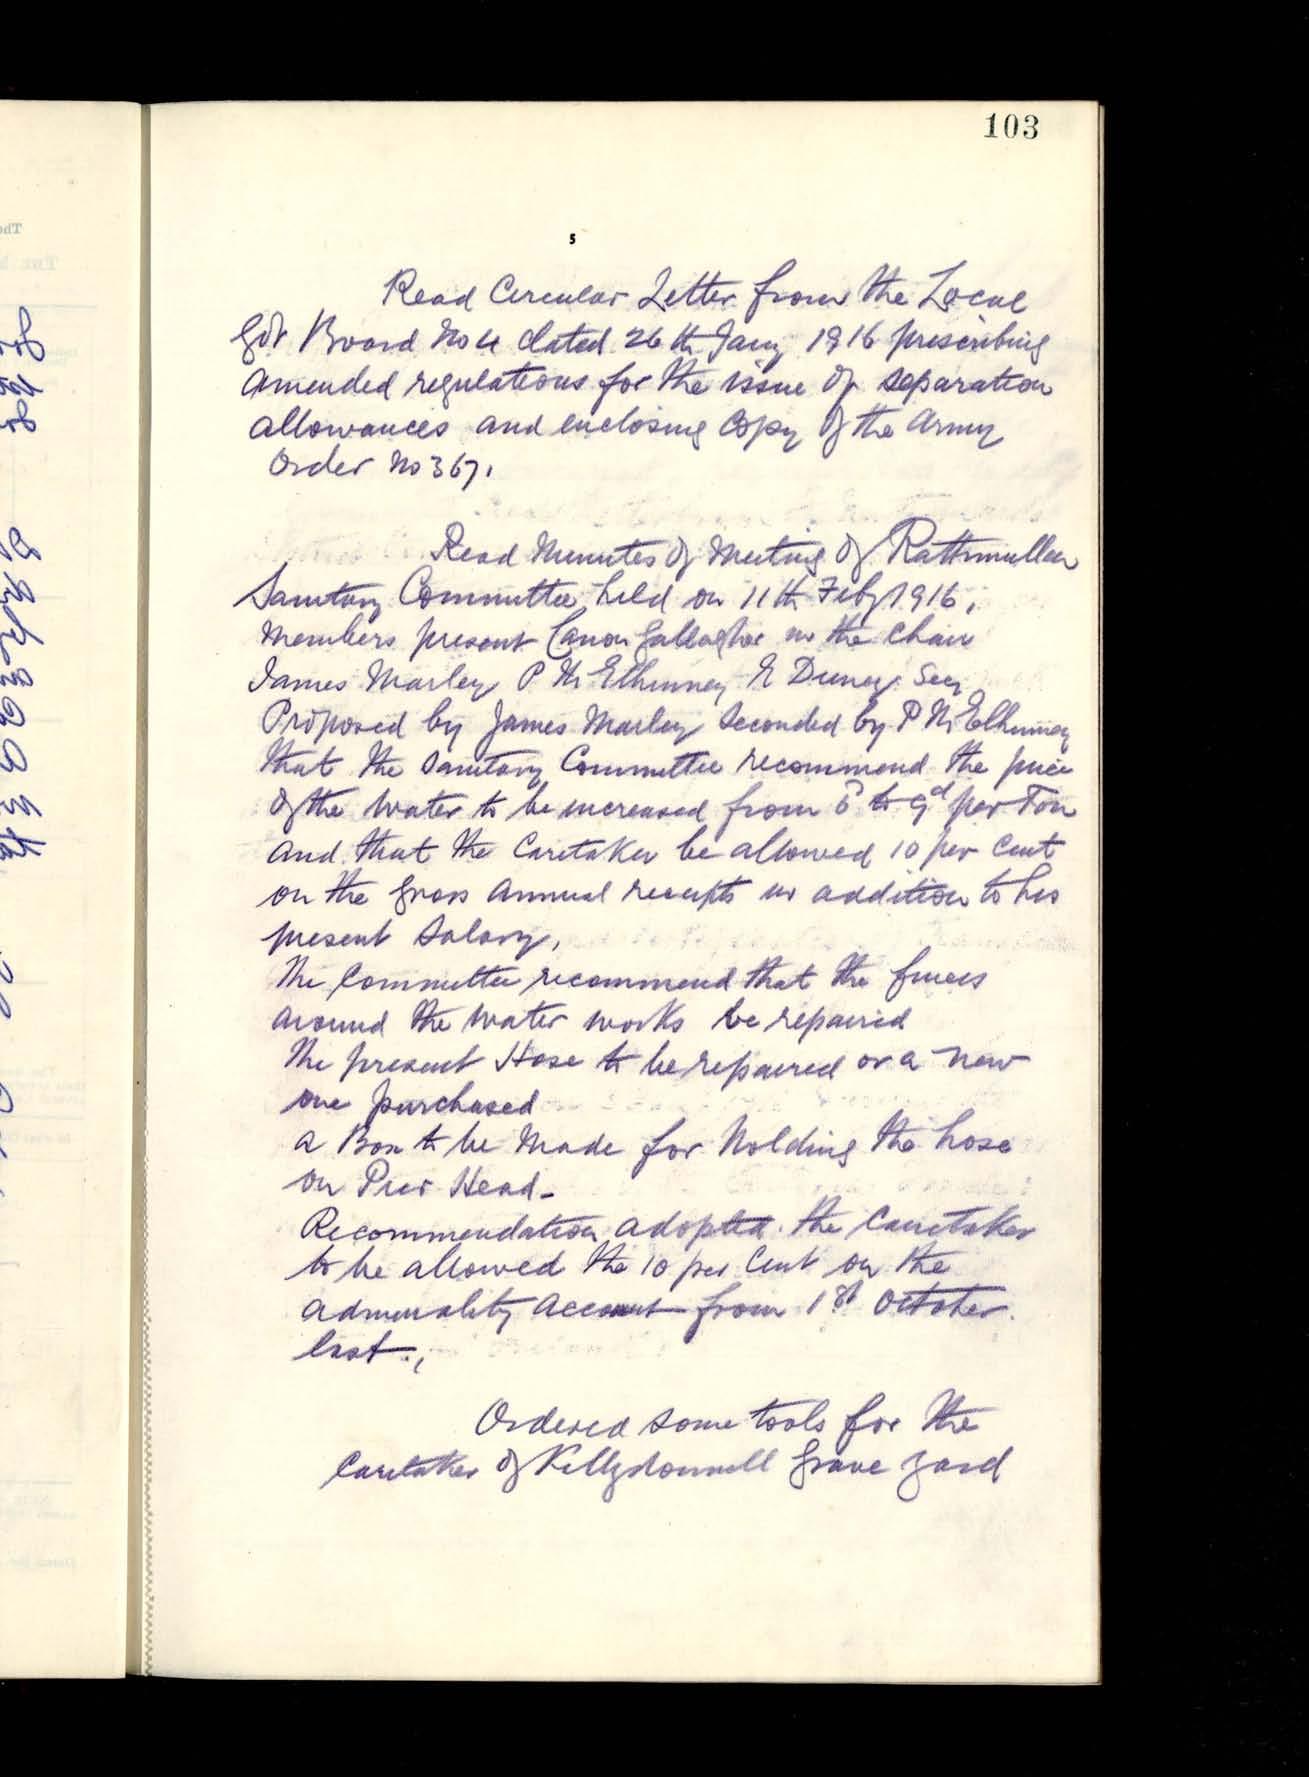 103
5
Read Circular Letter from the Local
Gov Board No 4 dated 26th Jany 1916 prescribing
amended regulations for the issue of separation
allowances and enclosing Copy of the Army
Order No 367.
Read Minutes of Meeting of Rathmullan
Sanitary Committee held on 11th Feby 1916.
Members present Canon Gallagher in the Chair
James Marley P McElhinney Secy
Proposed by James Marley Seconded by P McElhinney
that the Sanitary Committee recommend the price
of the Water to be increased from to 9d per Ton
and that the Caretaker be allowed 10 per Cent
on the Gross Annual receipts in addition to his
present Salary.
The Committee recommend that the fences
around the Water Works be repaired
The present Hose to be repaired or a New
one purchased
a Box to be Made for Holding the hose
on Pier Head -
Recommendation adopted. the Caretaker
to be allowed the 10 per Cent on the
Admiralty Account from 1st October
last.,
Ordered some tools for the
Caretaker of Killydonnell Grave Yard